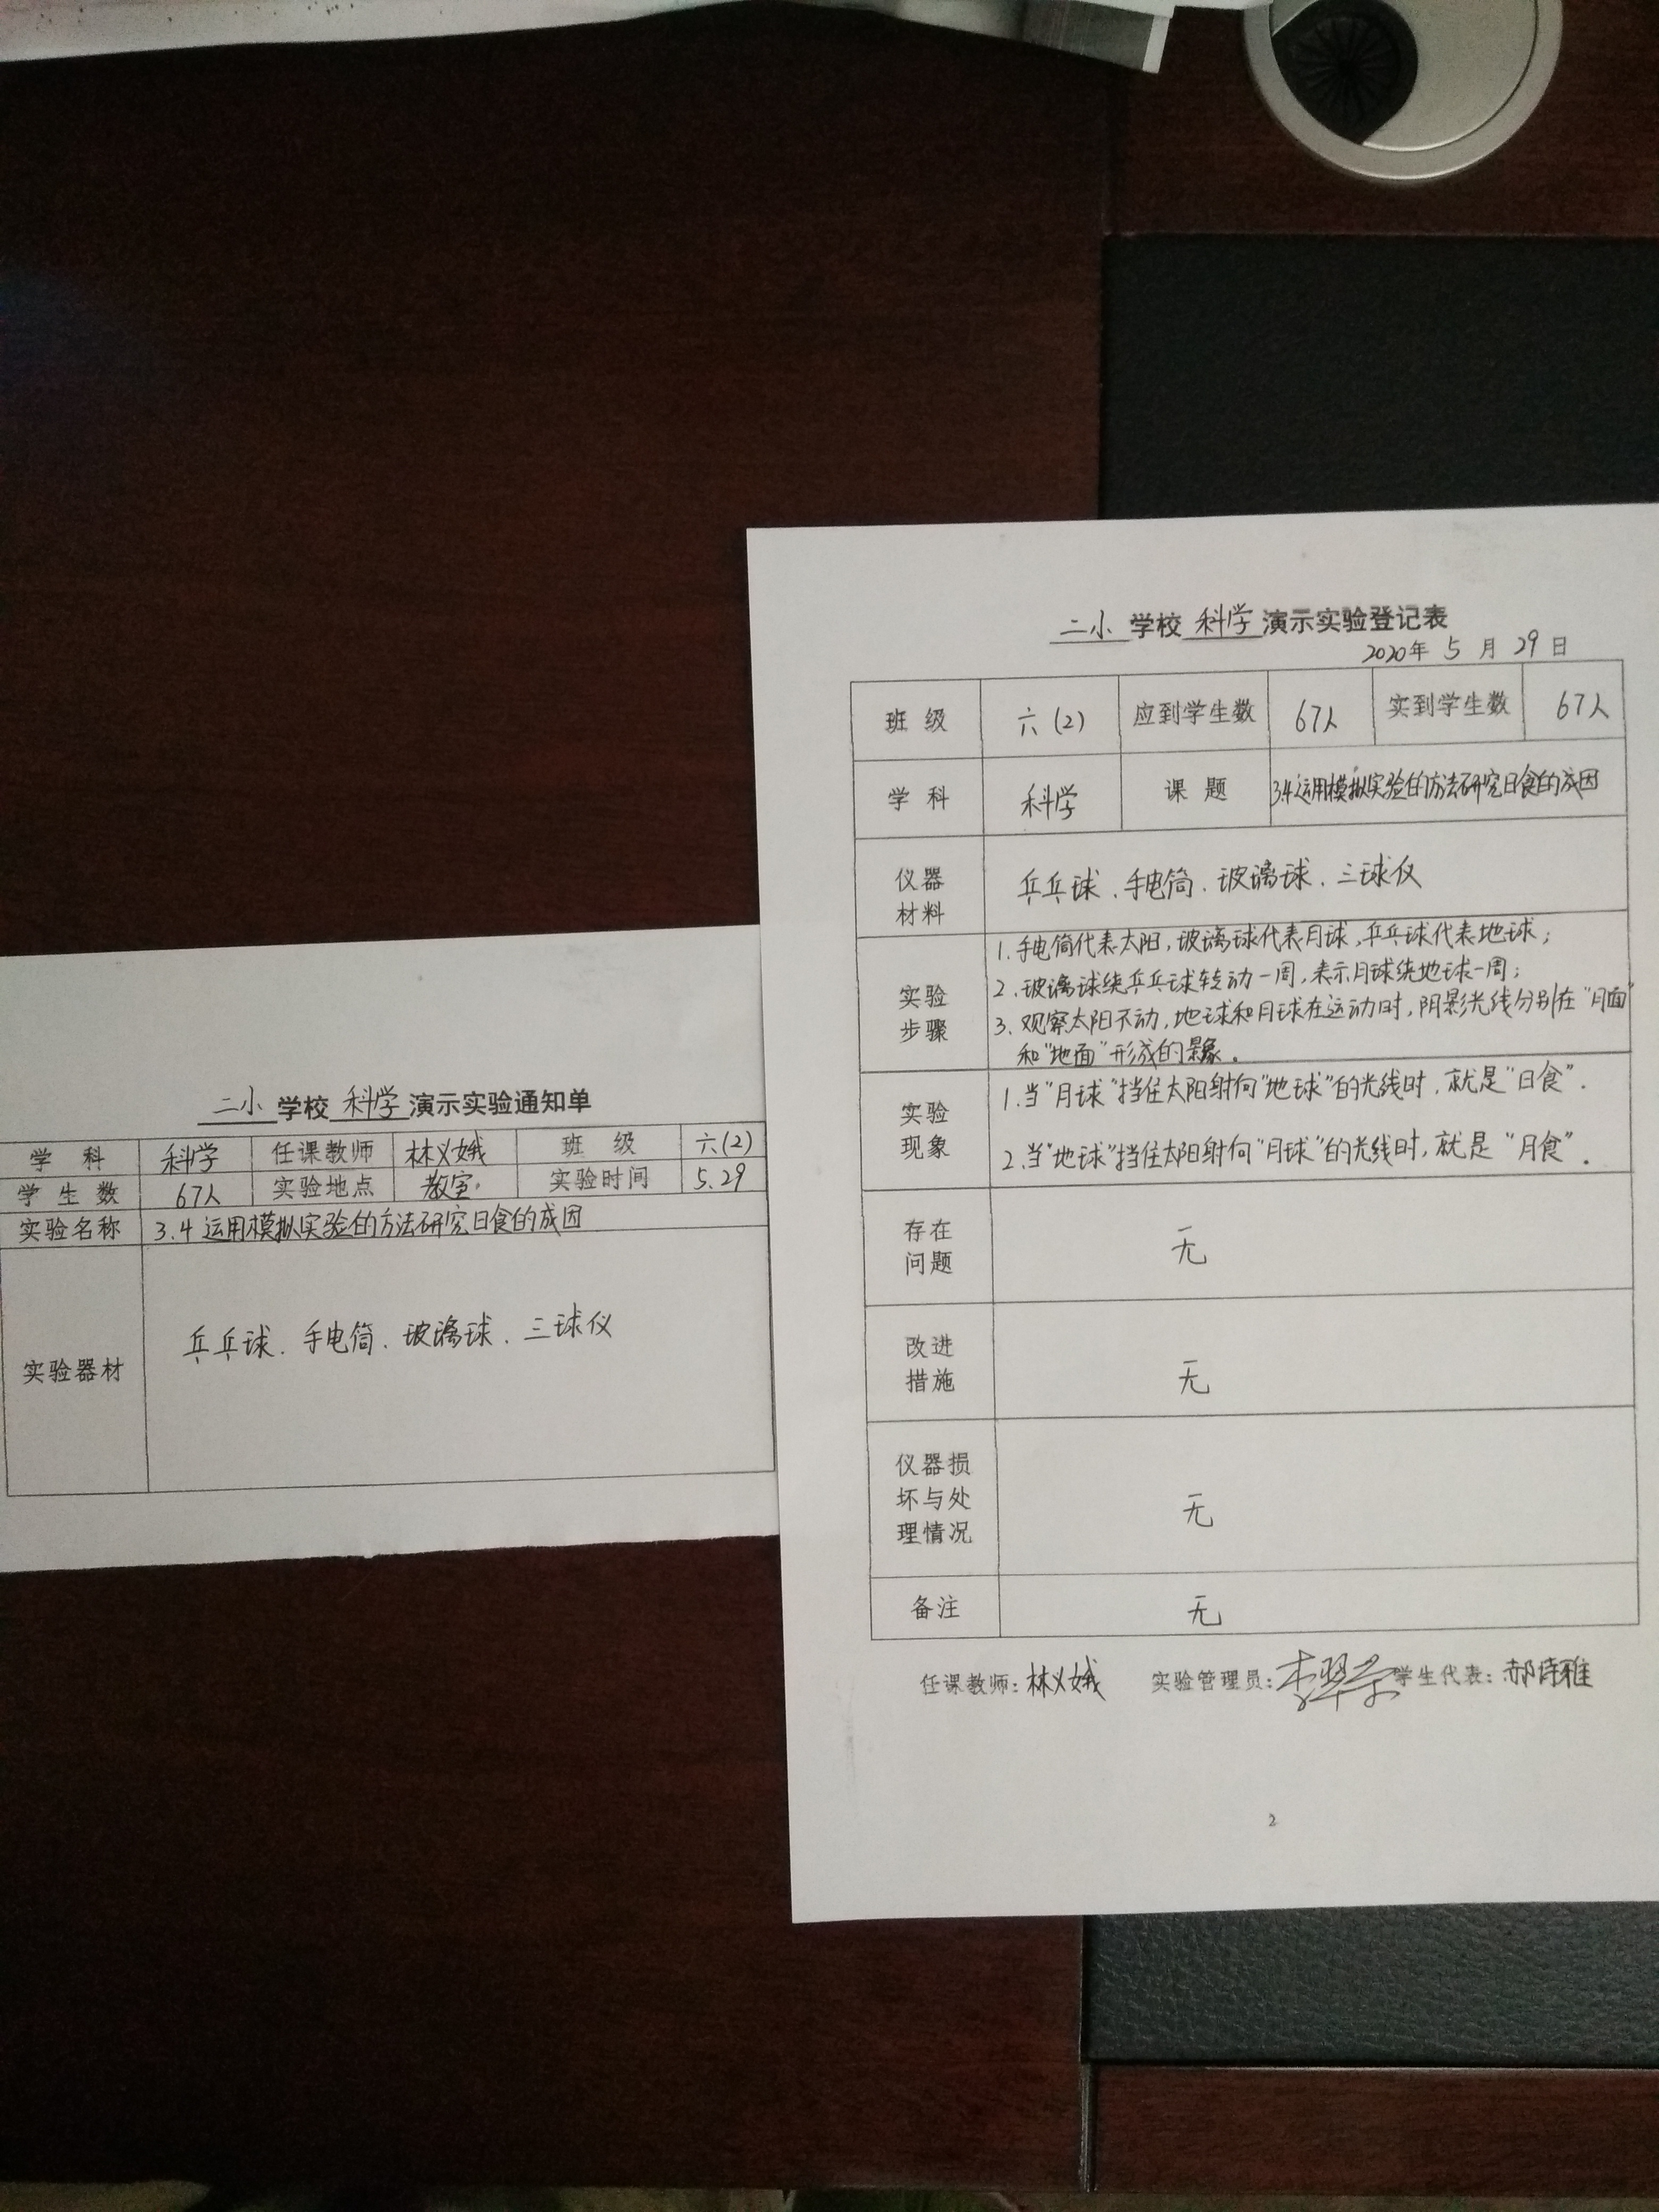 二小 学校 科学 演示实验通知单
学 科 科学 任课教师 林义娥 班 级 六(2)
学 生 数 67人 实验地点 教室. 实验时间 5.29
实验名称 3.4 运用模拟实验的方法研究日食的成因
实验器材 乒乓球. 手电筒. 玻璃球. 三球仪
二小 学校 科学 演示实验登记表
2020年 5 月 29 日
班 级 六(2) 应到学生数 67人 实到学生数 67人
学 科 科学 课 题 3.4运用模拟实验的方法研究日食的成因
仪器
材料
乒乓球. 手电筒. 玻璃球. 三球仪
实验
步骤
1. 手电筒代表太阳, 玻璃球代表月球, 乒乓球代表地球;
2. 玻璃球绕乒乓球转动一周, 表示月球绕地球一周;
3. 观察太阳不动, 地球和月球在运动时, 阴影光线分别在“月面”
和“地面”形成的景象.
实验
现象
1. 当“月球”挡住太阳射向“地球”的光线时. 就是“日食”.
2. 当“地球”挡住太阳射向“月球”的光线时, 就是“月食”.
存在
问题
无
改进
措施
无
仪器损
坏与处
理情况
无
备注 无
任课教师: 林义娥 实验管理员: 学生代表: 郝诗雅
2